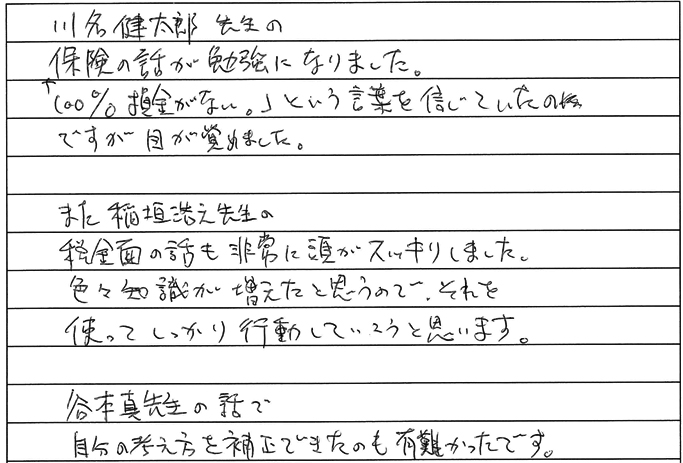 川名健太郎 先生の
保険の話が勉強になりました。
「100% 損金がない。」という言葉を信じていたの
ですが目が覚めました。
また稲垣浩之先生の
税金面の話も非常に頭がスッキリしました。
色々知識が増えたと思うので、それを
使ってしっかり行動していこうと思います。
谷本真先生の話で
自分の考え方を補正できたのも有難かったです。